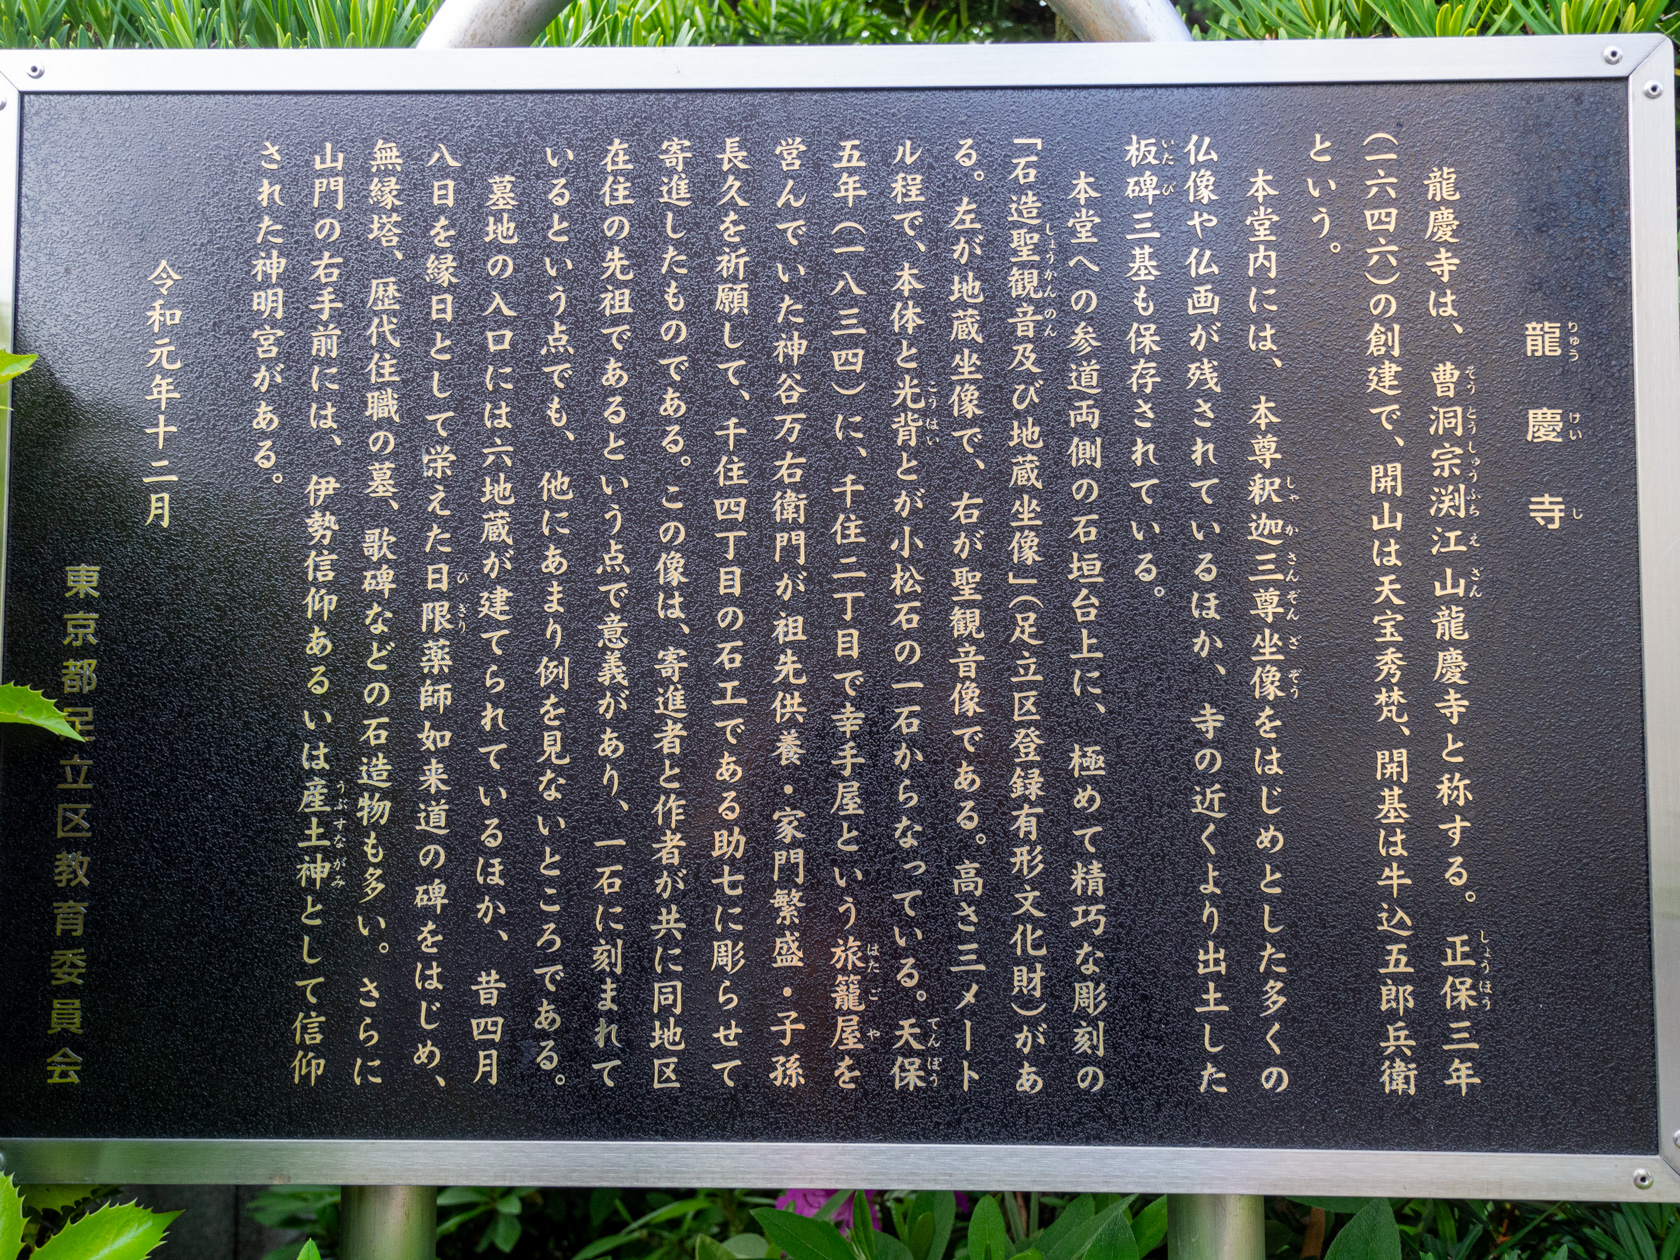 龍慶寺
りゅうけいし
龍慶寺は、曹洞宗渕江山龍慶寺と称する。正保三年
そうとうしゅうふちえさん
しょうほう
(一六四六)の創建で、開山は天宝秀梵、開基は牛込五郎兵衛
という。
本堂内には、本尊釈迦三尊坐像をはじめとした多くの
しゃかさんぞんざぞう
仏像や仏画が残されているほか、寺の近くより出土した
板碑三基も保存されている。
いたび
本堂への参道両側の石垣台上に、極めて精巧な彫刻の
「石造聖観音及び地蔵坐像」(足立区登録有形文化財)があ
しょうかんのん
る。左が地蔵坐像で、右が聖観音像である。高さ三メート
ル程で、本体と光背とが小松石の一石からなっている。天保
こうはい
てんぽう
五年(一八三四)に、千住二丁目で幸手屋という旅籠屋を
はたごや
営んでいた神谷万右衛門が祖先供養・家門繁盛・子孫
長久を祈願して、千住四丁目の石工である助七に彫らせて
寄進したものである。この像は、寄進者と作者が共に同地区
在住の先祖であるという点で意義があり、一石に刻まれて
いるという点でも、他にあまり例を見ないところである。
墓地の入口には六地蔵が建てられているほか、昔四月
八日を縁日として栄えた日限薬師如来道の碑をはじめ、
ひぎり
無縁塔、歴代住職の墓、歌碑などの石造物も多い。さらに
山門の右手前には、伊勢信仰あるいは産土神として信仰
うぶすながみ
された神明宮がある。
令和元年十二月
東京都足立区教育委員会